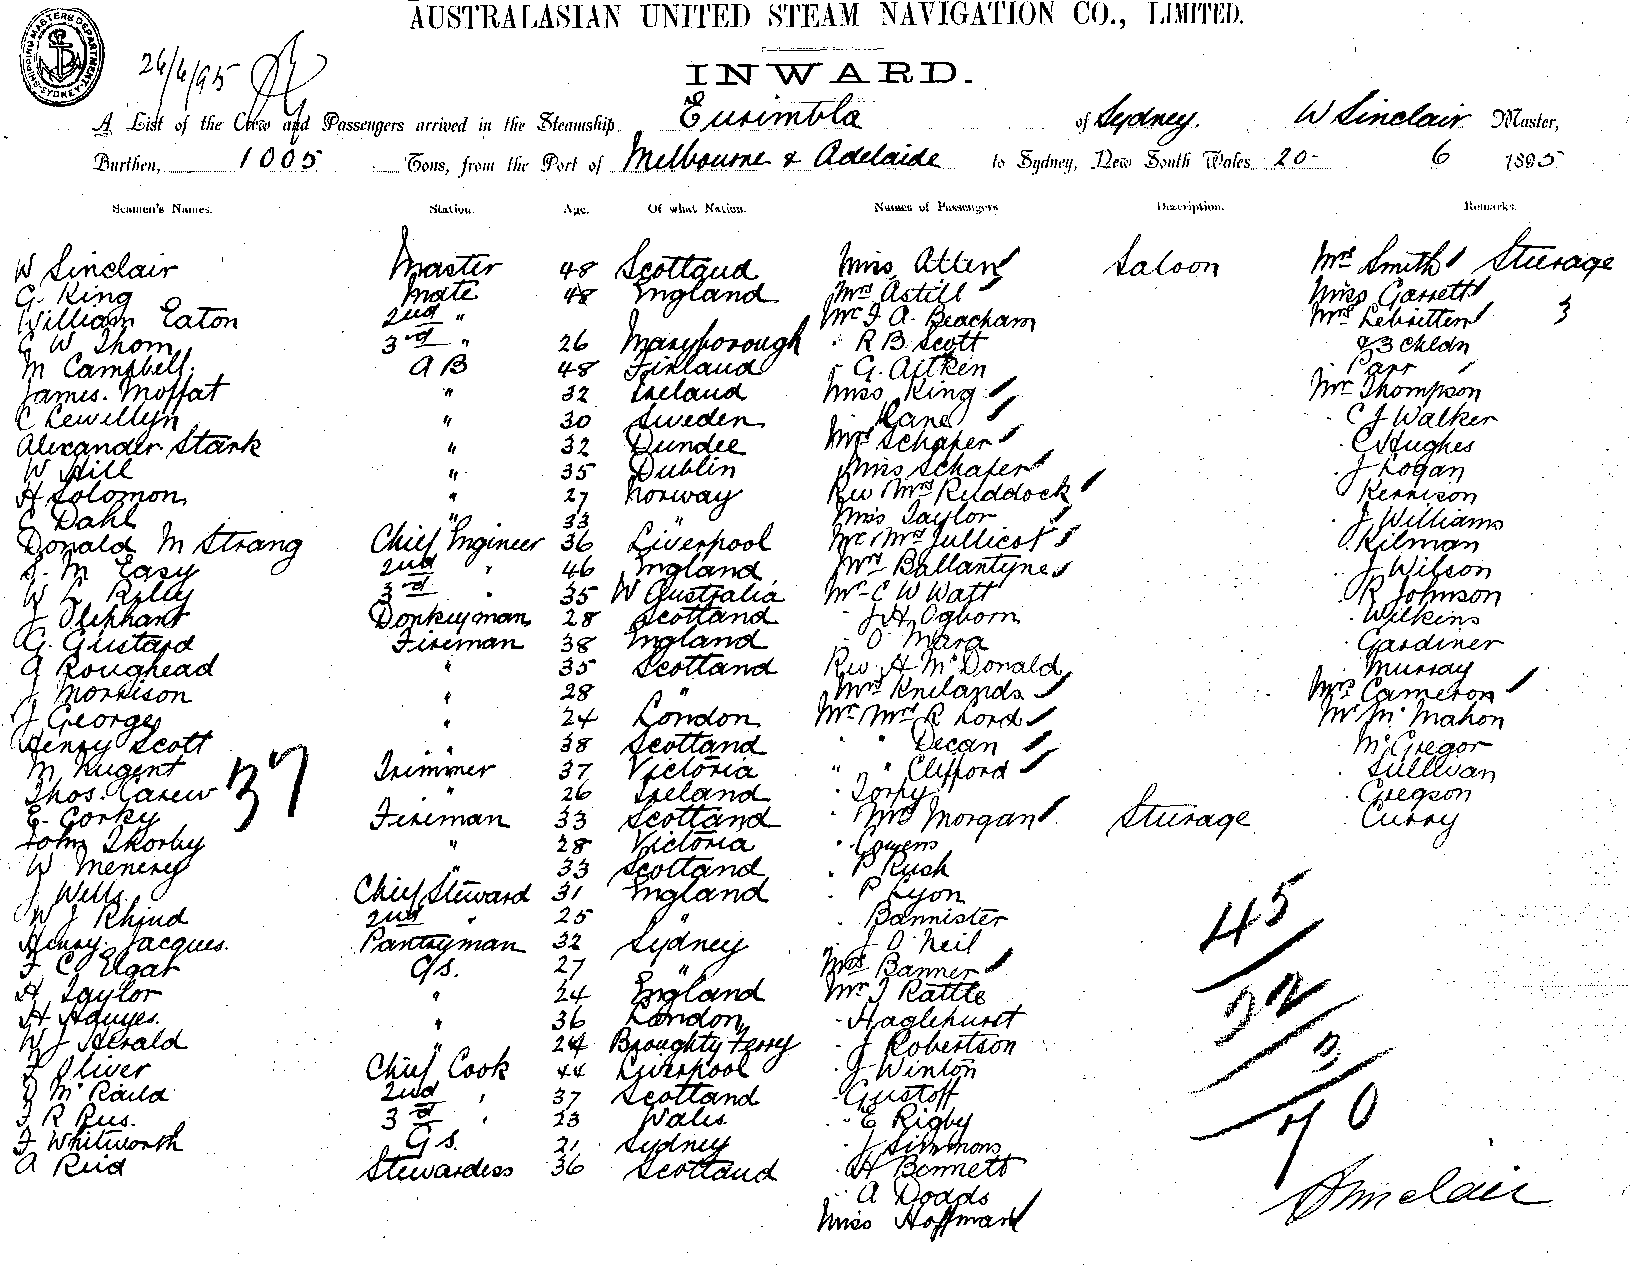 AUSTRALASIAN UNITED STEAM NAVIGATION CO., LIMITED.
SHIPPING MASTERS DEPARTMENT SYDNEY
26/6/95
INWARD.
A List of the Crew and Passengers arrived in the Steamship Eurimbla of Sydney. W Sinclair Master,
Burthen, 1005 Tons, from the Port of Melbourne & Adelaide to Sydney, New South Wales 20- 6 1895
Seamen's Names. Station. Age. Of what Nation. Names of Passengers Description. Remarks.
W Sinclair Master 48 Scotland Miss Allen Saloon Mrs Smith Sturage
G. King Mate 48 England Mrs Astill Miss Garrett
William Eaton 2nd " Mr J. A. Beacham Mrs 3
C W Thom 3rd " 26 Maryborough " R B Scott & 3 chldn
M Campbell A B 48 Finland " G. Aitken " Parr
James. Moffat " 32 Ireland Miss King Mr Thompson
C Lewillyn " 30 Sweden " Kane " C J Walker
Alexander Stark " 32 Dundee Mrs Schafer " C Hughes
W Hill " 35 Dublin Miss Schafer " J Logan
H Solomon " 27 Norway Rev Mrs Ruddock " Kerrison
C Dahl " 33 " Miss Taylor " J Williams
Donald M Strang Chief Engineer 36 Liverpool Mr Mrs Jullicot " Kilman
J. M Easy 2nd " 46 England Mrs Ballantyne " J Wilson
W L Rilly 3rd " 35 W Australia Mr C W Watt " R Johnson
J Oliphant Donkeyman 28 Scotland " J H Ogborn " Wilkins
G. Gustard Fireman 38 England " O'Mara " Gardiner
A Roughead " 35 Scotland Rev H McDonald " Murray
J Morrison " 28 " Mrs Knilands Mrs Cameron
J George " 24 London Mr Mrs R Lord Mr McMahon
Henry Scott " 38 Scotland " " Decan " McGregor
M Nugent Trimmer 37 Victoria " " Clifford " Sullivan
Thos. Carew " 26 Ireland " Torpy " Gregson
37
E. Corky Fireman 33 Scotland " Mrs Morgan Sturage " Curry
John Thorby " 28 Victoria " Cowens
W Menery " 33 Scotland " P Rush
J Wells Chief Steward 31 England " P Lyon
W J Rhind 2nd " 25 " " Bannister
Henry Jacques. Pantryman 32 Sydney " J O'Neil
F C Elgar G/S. 27 " Mrs Banner
H Taylor " 24 England Mr J Rattle
H Hauyes. " 36 London " Haglehurst
W J Herald " 24 Broughty Ferry " J Robertson
J Oliver Chief Cook 44 Liverpool " J Winton
D McRaild 2nd " 37 Scotland " Gustoff
J R Rus. 3rd " 23 Wales " E Rigby
F Whitworth G S. 21 Sydney " J Simmons
A Reid Stewardess 36 Scotland " H Bennett
" A Dodds
Miss Hoffman
45
22
3
70
Sinclair